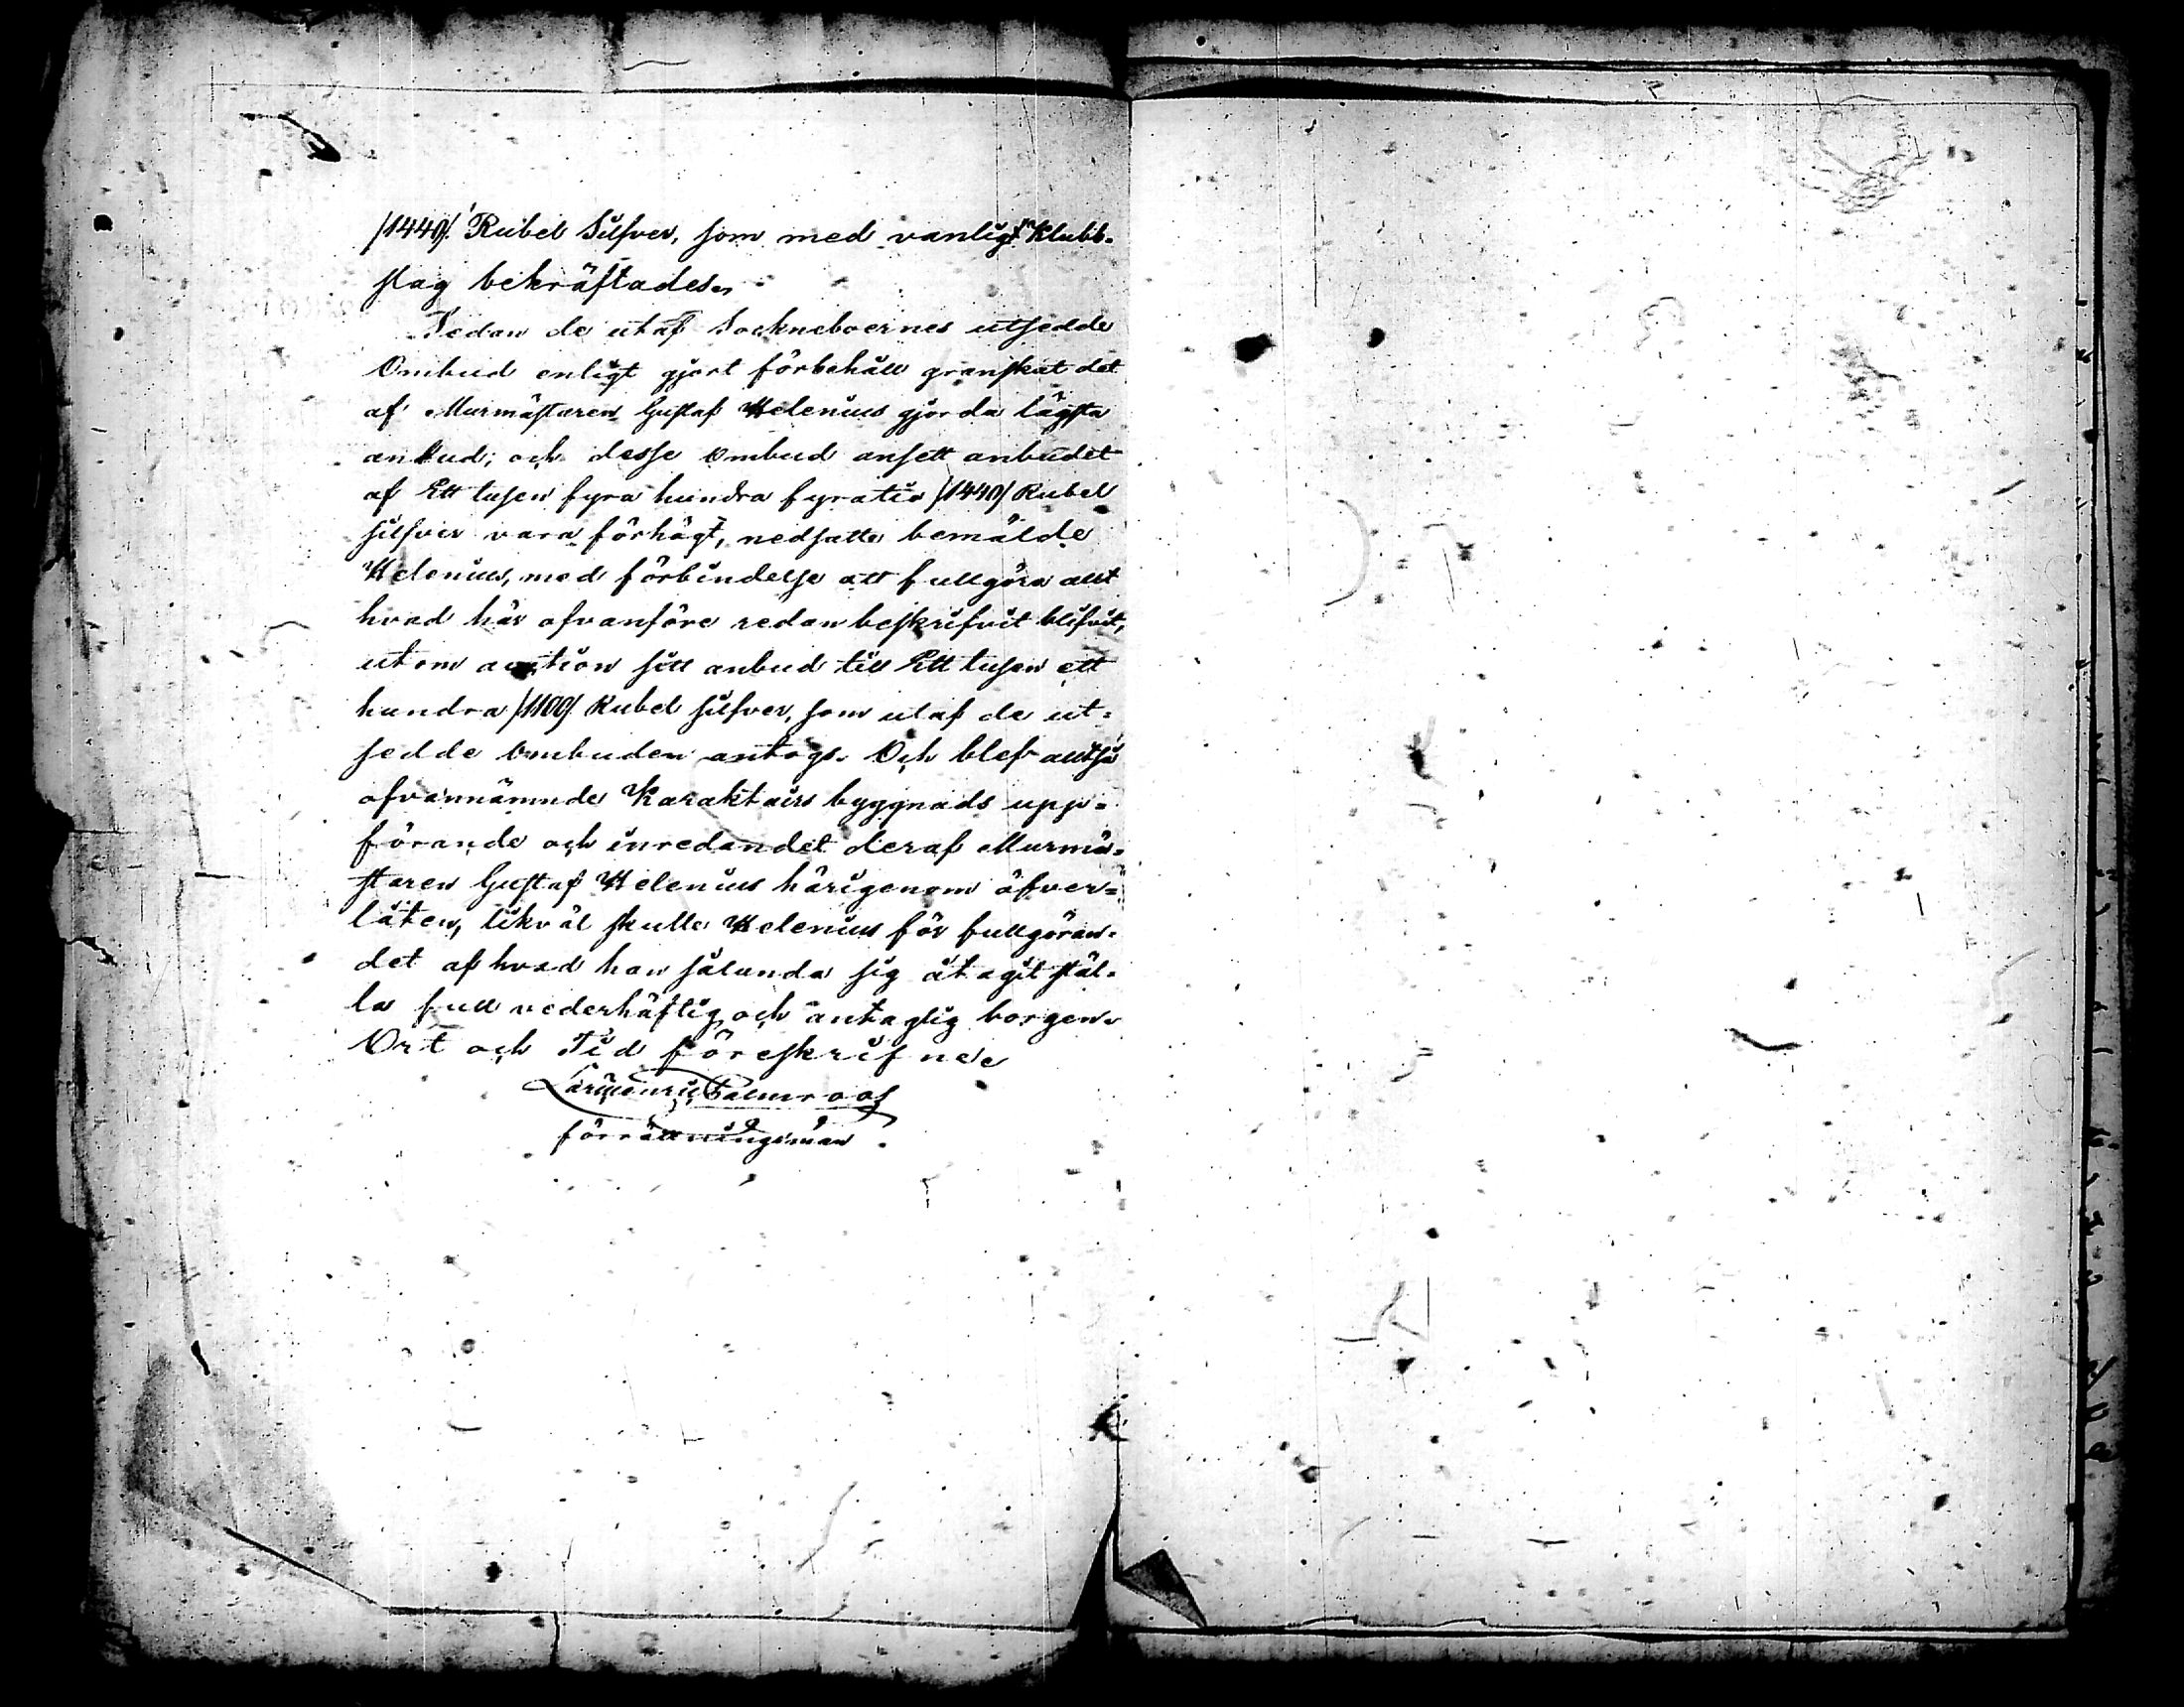 /1440/. Rubel Silfver, som med vanligt Klubb-
slag bekräftades.
Sedan de utaf Sockneboernes utsedde
Ombud enligt gjort förbehåll granskat det
af Murmästaren Gustaf Helenius gjorda lägsta
anbud; och desse ombud ansett anbudet
af Ett tusen fyra hundra fyratio /1440/ Rubel
silfver vara förhögt, nedsatte bemälde
Helenius, med förbindelse att fullgöra allt
hvad här ofvanföre redan beskrifvit blifvit,
utom auction sitt anbud till Ett tusen ett
hundra /1100/. Rubel silfver, som utaf de ut-
sedde ombuden antogs. Och blef alltså
ofvannämnde Karaktairs byggnads upp-
förande och inredandet deraf Murmä-
staren Gustaf Helenius härigenom öfver-
låten, likväl skulle Helenius för fullgöran-
det af hvad han sålunda sig åtagit stäl-
la full vederhäftig och antaglig borgen.
Ort och Tid föreskrifne
Palmroos
förrättningsman.